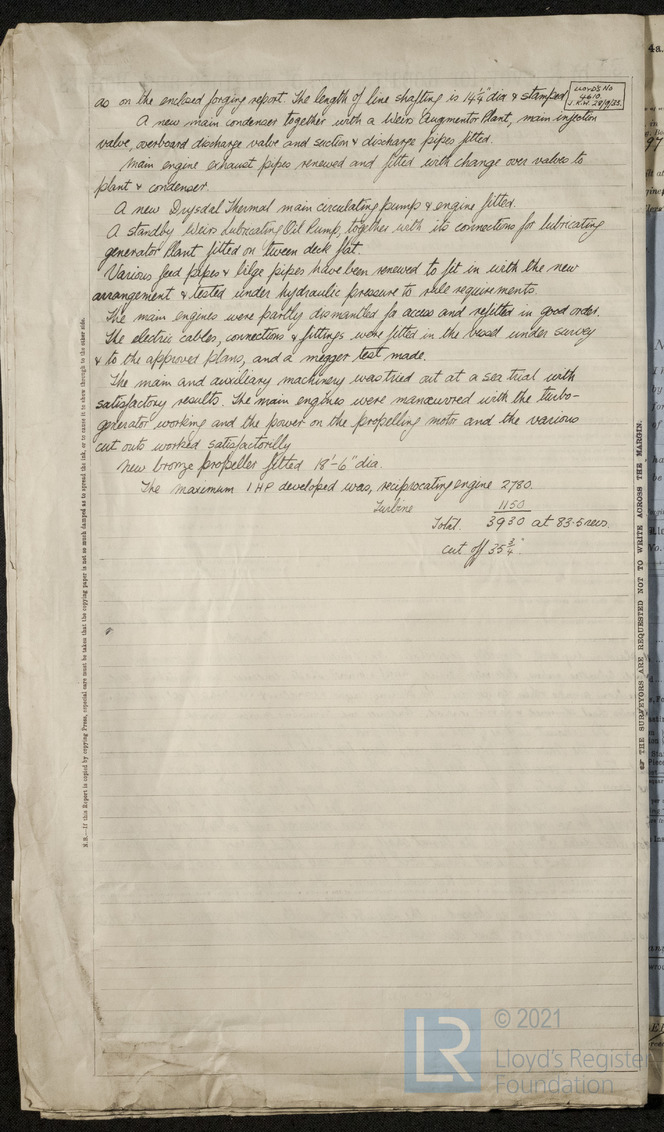 as on the enclosed forging report. The length of line shafting is 14¼" dia & stamped
LLOYD'S No
4610.
J.K.W. 28/9/33.
A new main condenser together with a Weirs Augmentor Plant, main injection
valve, overboard discharge valve and suction & discharge pipes fitted.
Main engine exhaust pipes renewed and fitted with change over valves to
plant & condenser.
A new Drysdal Thermal main circulating pump & engine fitted.
A standby Weirs Lubricating Oil Pump, together with its connections for lubricating
generator Plant fitted on tween deck flat.
Various feed pipes & bilge pipes have been renewed to fit in with the new
arrangement & tested under hydraulic pressure to rule requirements.
The main engines were partly dismantled for access and refitted in good order.
The electric cables, connections & fittings were fitted in the vessel under survey
& to the approved plans, and a megger test made.
The main and auxiliary machinery was tried out at a sea trial with
satisfactory results. The main engines were manœuvred with the turbo-
generator working and the power on the propelling motor and the various
cut outs worked satisfactorilly
New bronze propeller fitted 18'-6" dia.
The maximum I HP developed was, reciprocating engine 2780.
Turbine 1150
Total. 3930 at 83.5 revs.
cut off 35¾".
N.B.—If this Report is copied by copying Press, especial care must be taken that the copying paper is not so much damped as to spread the ink, or to cause it to show through to the other side.
☞ THE SURVEYORS ARE REQUESTED NOT TO WRITE ACROSS THE MARGIN.
4a.
97
LR
© 2021
Lloyd's Register
Foundation